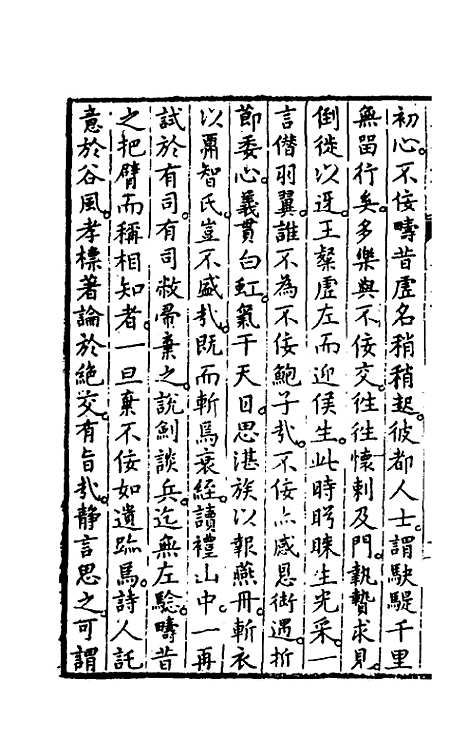 初心不佞疇昔虛名稍稍起彼都人士謂駃騠千里
無留行矣多樂與不佞交徃徃懷刺及門執贄求見
倒徙以迓王粲虛左而迎侯生此時眄睞生光采一
言僭羽翼誰不為不佞鮑子㢤不佞亦感恩銜遇折
節委心義貫白虹氣干天日思湛族以報燕丹斬衣
以肅智氏豈不盛㢤既而斬焉衰絰讀禮山中一再
試於有司有司敝帚棄之說劍談兵迄無左驗疇昔
之把臂而稱相知者一旦棄不佞如遺跡焉詩人託
意於谷風孝標著論於絶交有旨㢤静言思之可謂